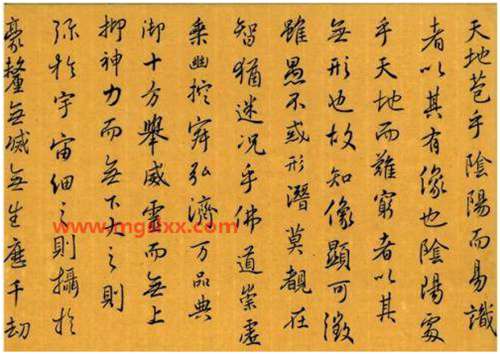 天地苞乎陰陽而易識
者以其有像也陰陽處
乎天地而難窮者以其
無形也故知像顯可徵
雖愚不惑形潛莫覩在
智猶迷況乎佛道崇虛
乘幽控寂弘濟万品典
御十方舉威靈而無上
抑神力而無下大之則
弥於宇宙細之則攝於
豪釐無滅無生歷千劫
www.mgalxx.com